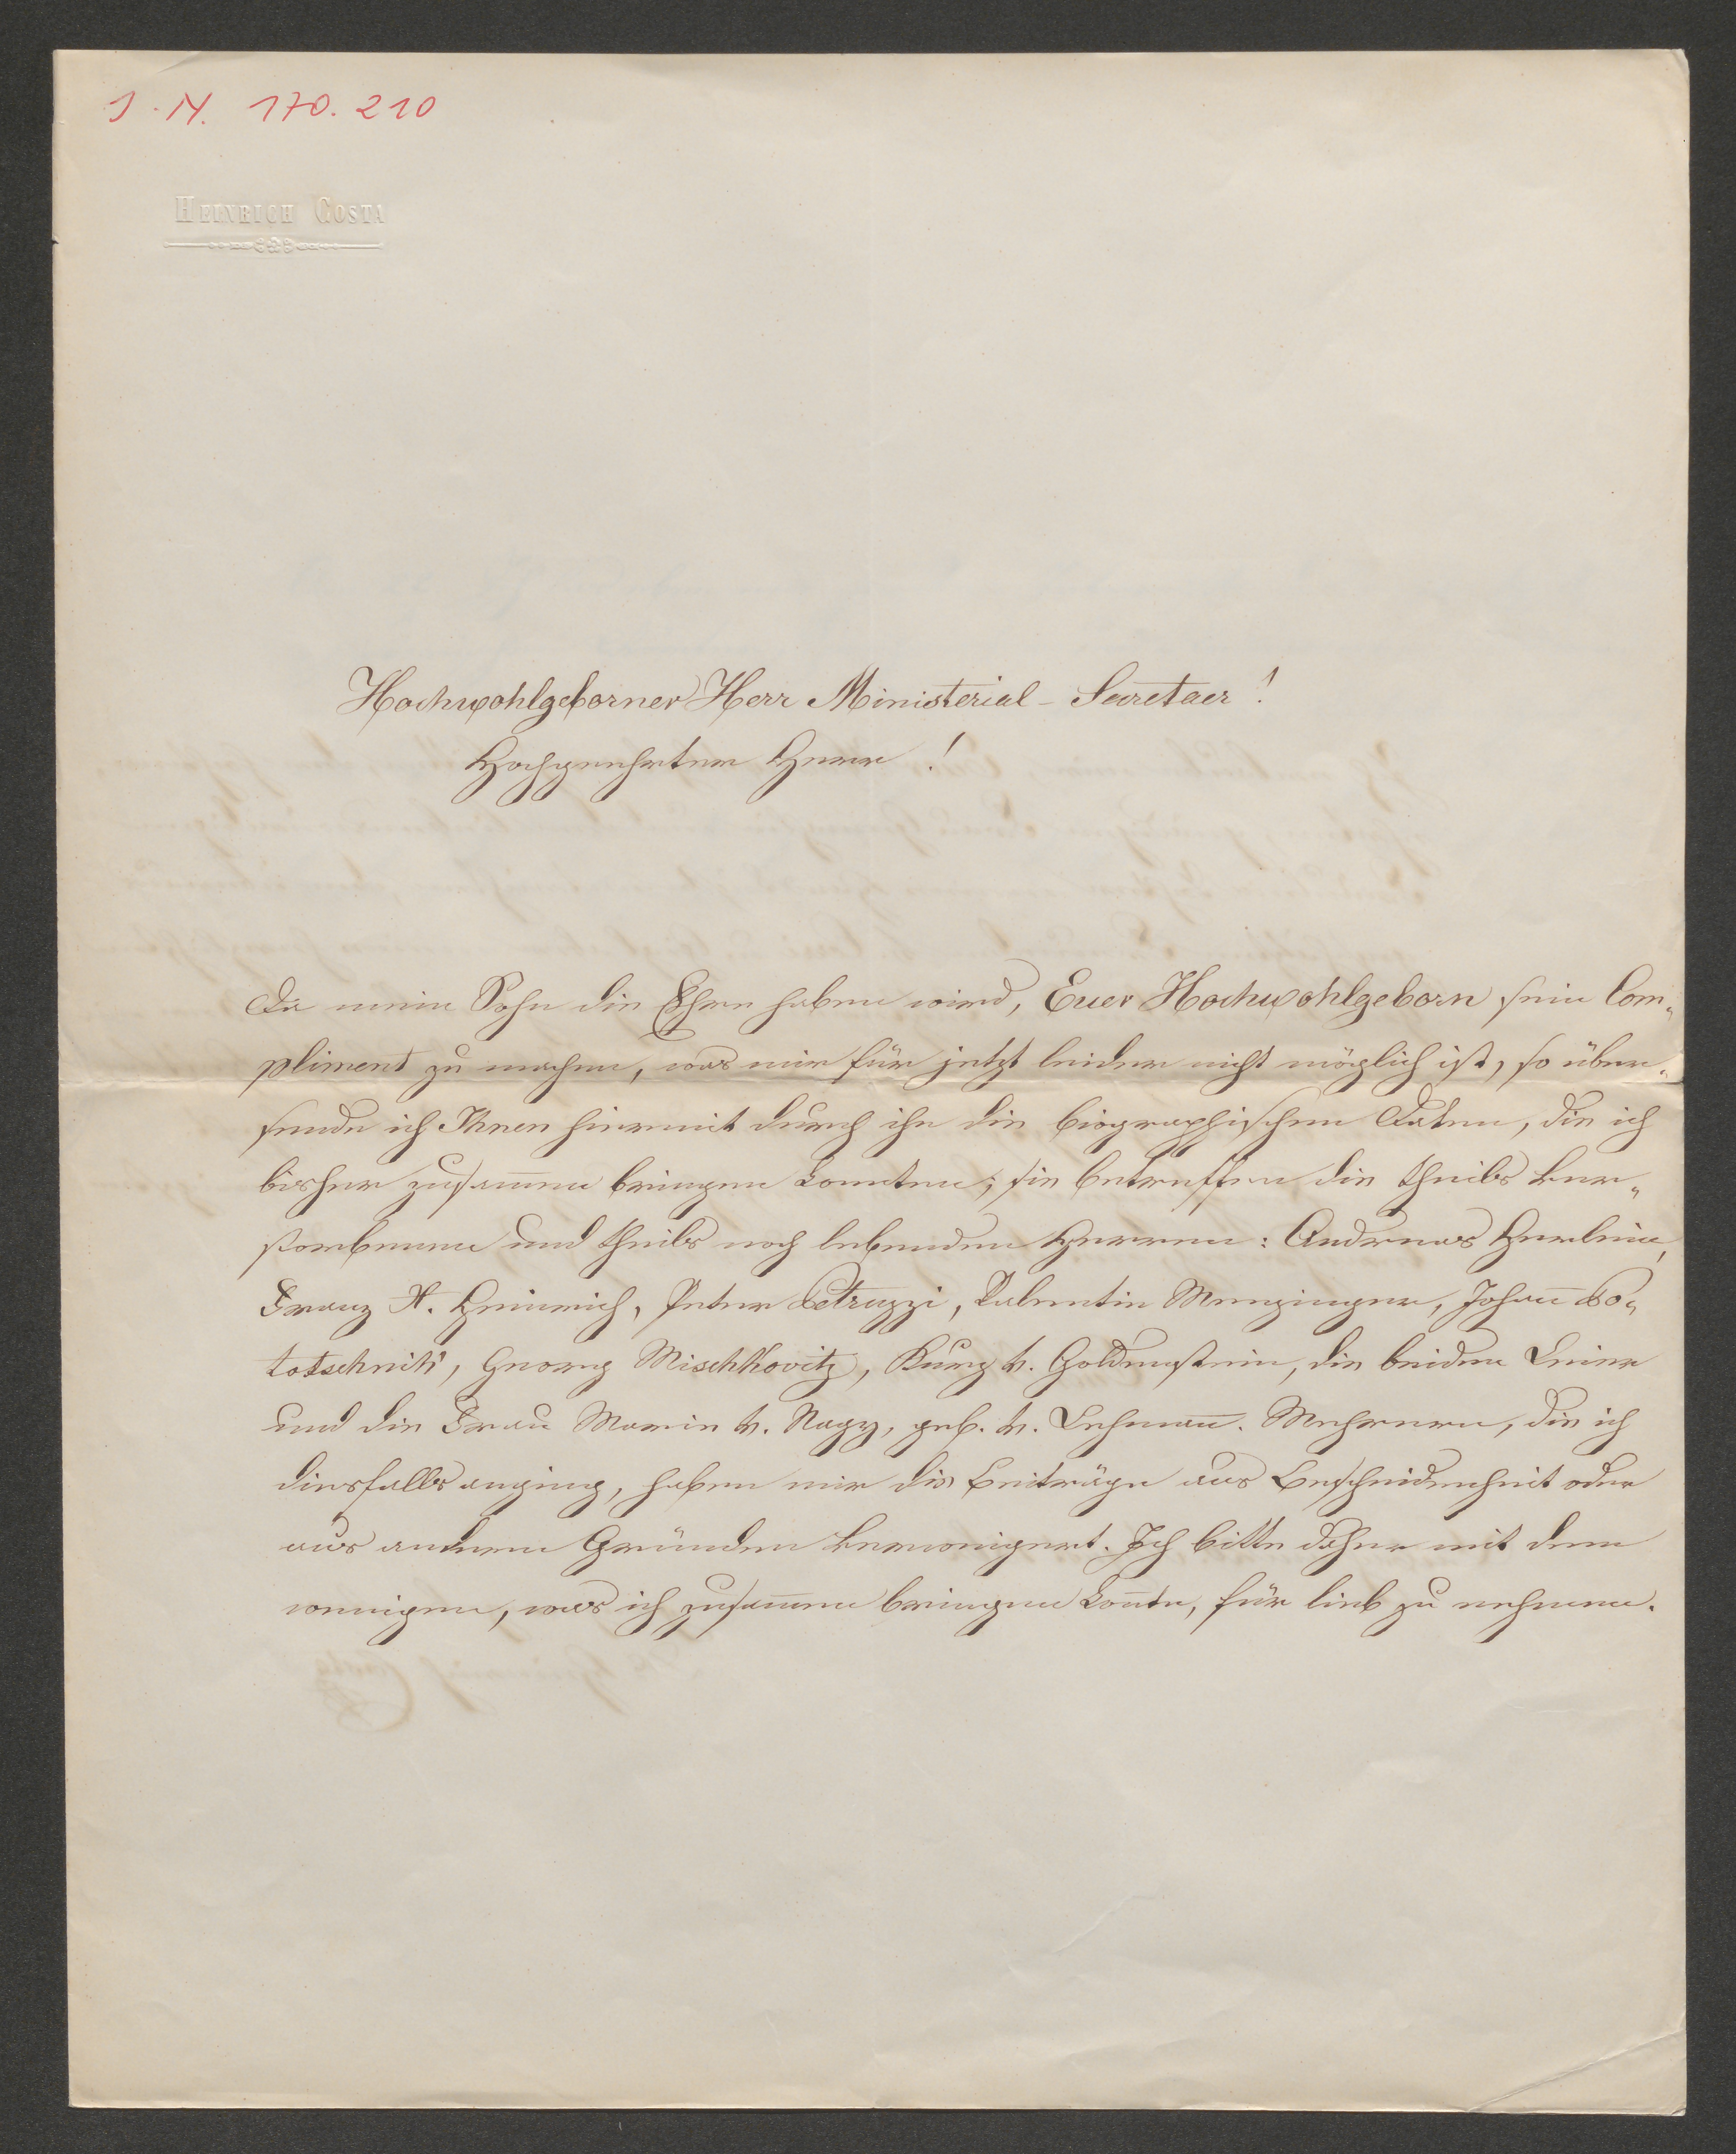 J. N. 170.210
HEINRICH COSTA
Hochwohlgeborner Herr Ministerial-Secretaer!
Hochgeehrter Herr!
Da mein Sohn die Ehre haben wird, Euer Hochwohlgeborn sein Com„
pliment zu machen, was mir für jetzt leider nicht möglich ist, so über„
sende ich Ihnen hiermit durch ihn die biographischen Daten, die ich
bisher zusam̅en bringen konnten; sie betreffen die theils ver„
storbenen und theils noch lebenden Herren: Andreas Herrlein,
Franz X. Heinrich, Peter Petruzzi, Valentin Menzinger, Johan̅ Po„
totschnik, Georg Mischkovitz, Kurz v. Goldenstein, die beiden Leier
und die Frau Marie v. Nagy, geb. v. Lehman̅. Mehrere, die ich
diesfalls anging, haben mir die Beiträge aus Bescheidenheit oder
aus andern Gründen verweigert. Ich bitte daher mit dem
wenigen, was ich zusam̅en bringen kon̅te, für lieb zu nehmen.